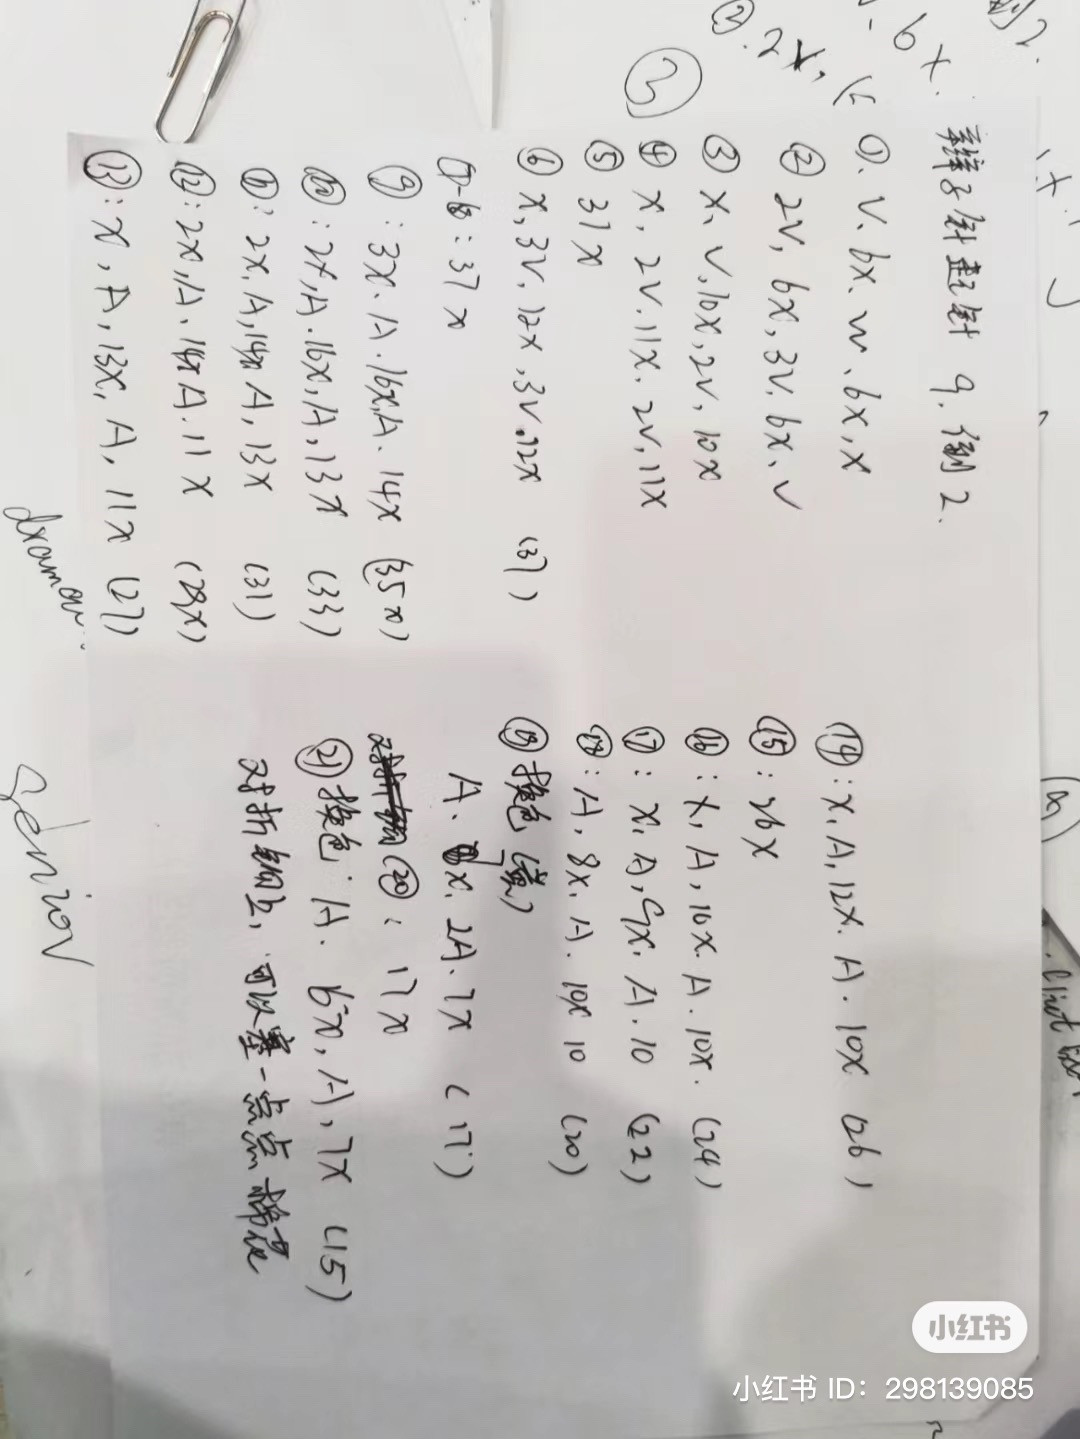 ③
辫子针起针 9, 倒2.
①. V. 6x. w. 6x, x
② 2V, 6x, 3V. 6x. V
③ X, V, 10x, 2V, 10x
④ x. 2V. 11x. 2V, 11x
⑤ 37x
⑥ x, 3V, 12x, 3V. 12x (37)
⑦-⑧: 37x
⑨: 3x. A. 16x, A. 14x (35x)
⑩: 2x, A. 16x, A, 13x (33)
⑪: 2x, A, 14x A, 13x (31)
⑫: 2x, A. 14x A. 11x (29x)
⑬: x, A, 13x, A, 11x (27)
⑭: x, A, 12x. A. 10x (26)
⑮: 26x
⑯: x, A, 10x. A. 10x. (24)
⑰: x. A, 9x. A. 10 (22)
⑱: A, 8x. A. 10x 10 (20)
⑲ 换色
A. 7x. 2A. 7x (17)
⑳: 17x
㉑ 换色: A. 6x, A, 7x (15)
对折钩上, 可以塞一点点棉花
Senior
小红书
小红书 ID: 298139085